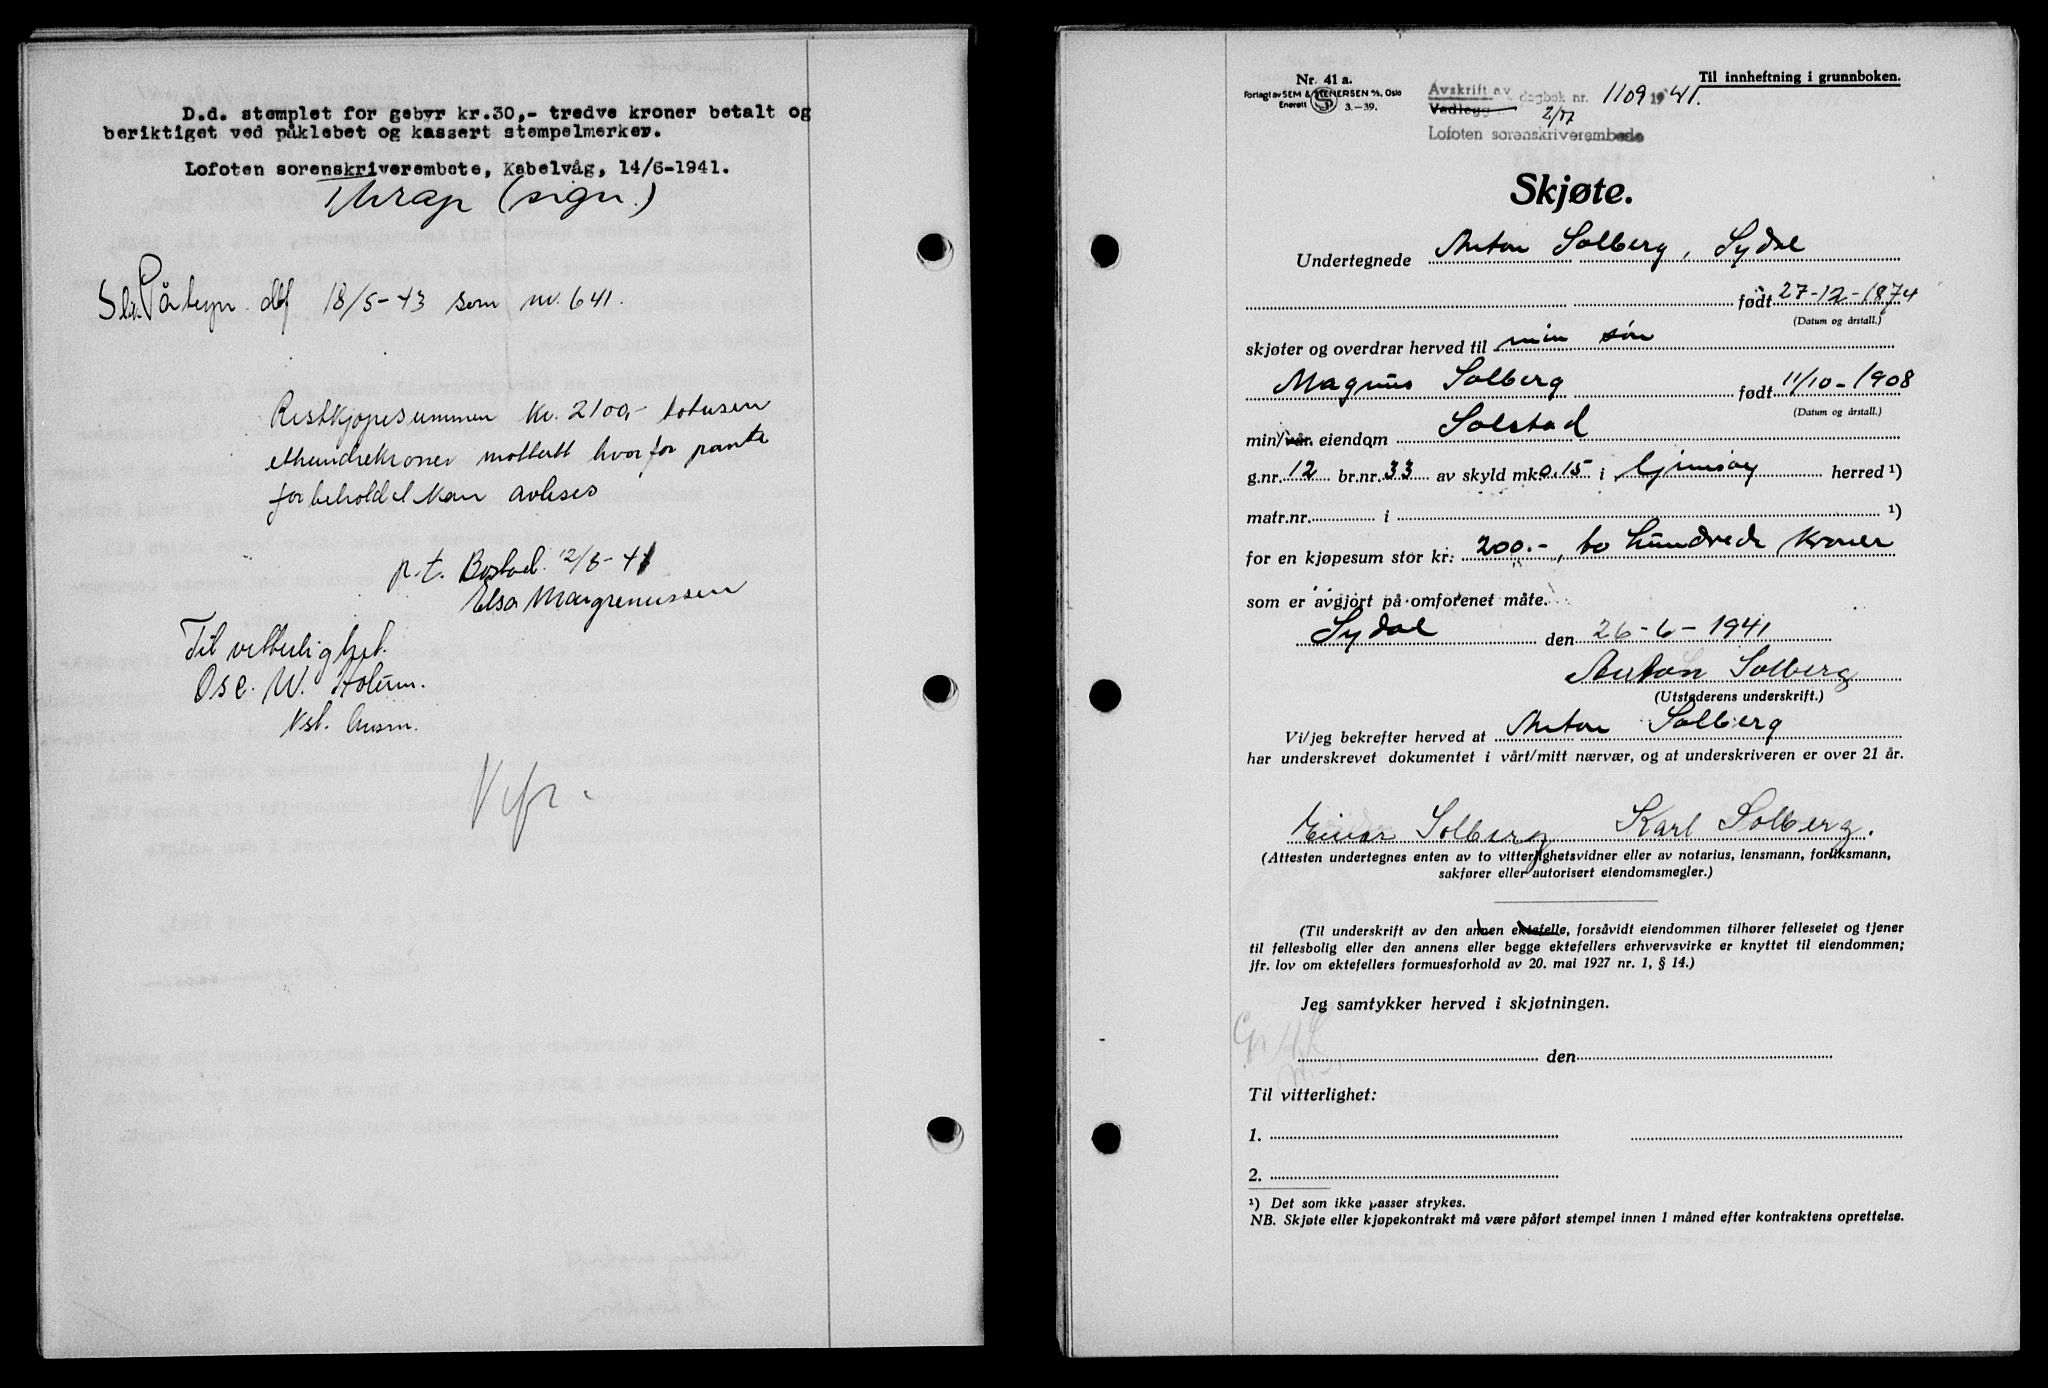 D.d. stemplet for gebyr kr.30,- tredve kroner betalt og
beriktiget ved påklebet og kassert stempelmerker.
Lofoten sorenskriverembete, Kabelvåg, 14/6-1941.
(sign.)
dbf 18/5-43 som nr. 641.
Restkjøpesummen kr. 2100,- totusen
etthundrekroner mottatt hvorfor pante
forbeholdet kan avlyses
p.t. Bostad 12/6-41
Elsa Margrenussen
Til vitterlighet.
Osc. W. Holum.
Nr. 41 a.
Forlagt av SEM & STENERSEN A/S, Oslo
Enerett 3.-39.
Avskrift av
Vedlegg
dagbok nr. 1109 1941.
2/7
Lofoten sorenskriverembede
Til innheftning i grunnboken.
Skjøte.
Undertegnede Anton Solberg, Sydal
født 27-12-1874
(Datum og årstall.)
skjøter og overdrar herved til min søn
Magnus Solberg født 11/10-1908
(Datum og årstall.)
min/vår eiendom Solstad
g.nr. 12 br.nr. 33 av skyld mk 0.15 i Gimsøy herred ¹)
matr.nr. i ¹)
for en kjøpesum stor kr: 200.-, to hundrede kroner
som er avgjort på omforenet måte.
Sydal den 26-6-1941
Anton Solberg
(Utstederens underskrift.)
Vi/jeg bekrefter herved at Anton Solberg
har underskrevet dokumentet i vårt/mitt nærvær, og at underskriveren er over 21 år.
Einar Solberg Karl Solberg.
(Attesten undertegnes enten av to vitterlighetsvidner eller av notarius, lensmann, forliksmann,
sakfører eller autorisert eiendomsmegler.)
(Til underskrift av den annen ektefelle, forsåvidt eiendommen tilhører felleseiet og tjener
til fellesbolig eller den annens eller begge ektefellers erhvervsvirke er knyttet til eiendommen;
jfr. lov om ektefellers formuesforhold av 20. mai 1927 nr. 1, § 14.)
Jeg samtykker herved i skjøtningen.
den
Til vitterlighet:
1.
2.
¹) Det som ikke passer strykes.
NB. Skjøte eller kjøpekontrakt må være påført stempel innen 1 måned efter kontraktens oprettelse.